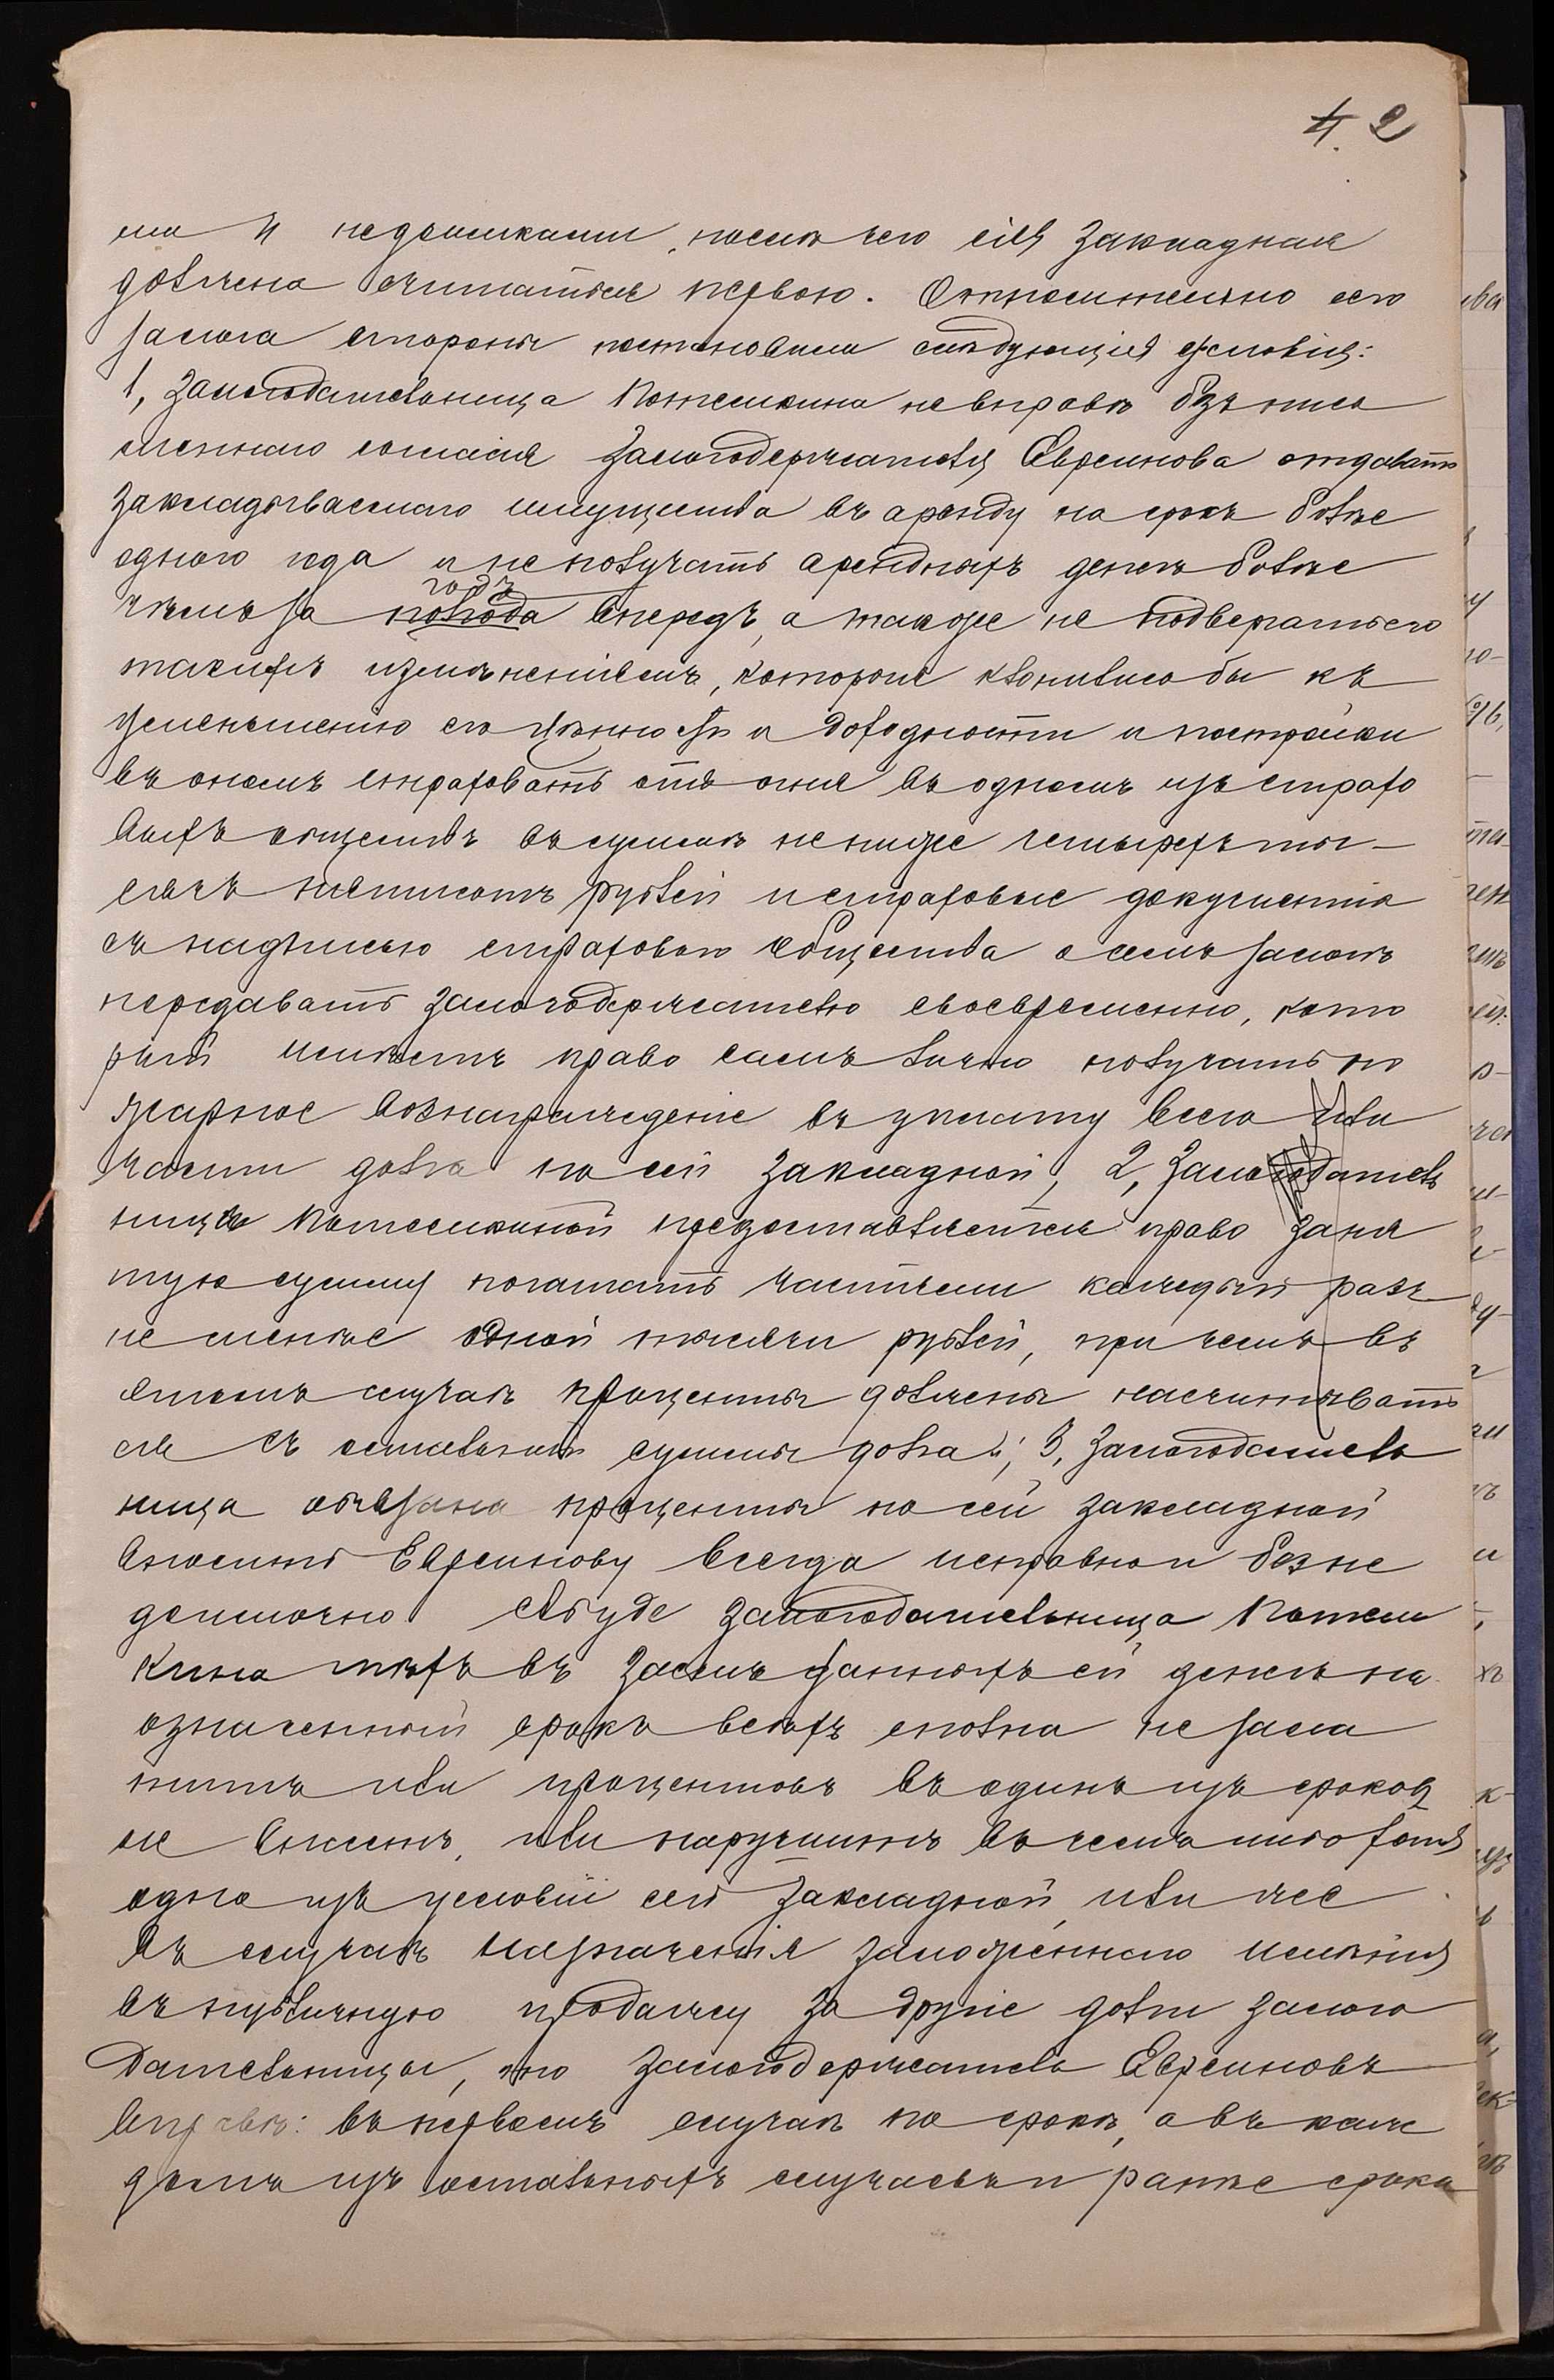 4. 2
ми и недоимками, послѣ чего сія закладная
должна считаться первою. Относительно сего
залога стороны постановили слѣдующія условія:
1, Залогодательница Потемкина невправѣ безъ пись
меннаго согласія Залогодержателя Евреинова отдавать
закладываемаго имущества въ аренду на срокъ болѣе
одного года и не получать арендныхъ денегъ болѣе
годъ
чѣмъ за полгода впередъ, а также не подвергать его
такимъ измѣненіямъ, которыя клонились бы къ
уменьшенію его цѣнности и доходности и постройки
въ ономъ страховать отъ огня въ одномъ изъ страхо
выхъ обществъ въ суммѣ не ниже четырехъ ты-
сячъ пятисотъ рублей и страховые документы
съ надписью страхового общества о семъ залогѣ
передавать залогодержателю своевременно, кото
рый имѣетъ право самъ лично получать по
жарное вознагражденіе въ уплату всего или
части долга по сей закладной; 2, Залогодатель
ницѣ Потемкиной предоставляется право заня
тую сумму погашать частями каждый разъ
не менѣе одной тысячи рублей, при чемъ въ
этомъ случаѣ проценты должны насчитывать
ся съ остальной суммы долга; 3, Залогодатель
ница обязана проценты по сей закладной
вносить Евреинову всегда исправно и безне
доимочно. Ежели буде залогодательница Потем
кина тѣхъ въ заемъ данныхъ ей денегъ на
означенный срокъ всѣхъ сполна не запла
титъ или процентовъ въ одинъ изъ сроковъ
не внесетъ, или нарушитъ въ чемъ либо хотя
одно изъ условій сей закладной, или же
въ случаѣ назначенія заложеннаго имѣнія
въ публичную продажу за другіе долги залого
дательницы, то залогодержатель Евреиновъ
вправѣ: въ первомъ случаѣ по срокѣ, а въ каж
домъ изъ остальныхъ случаевъ и ранѣе срока